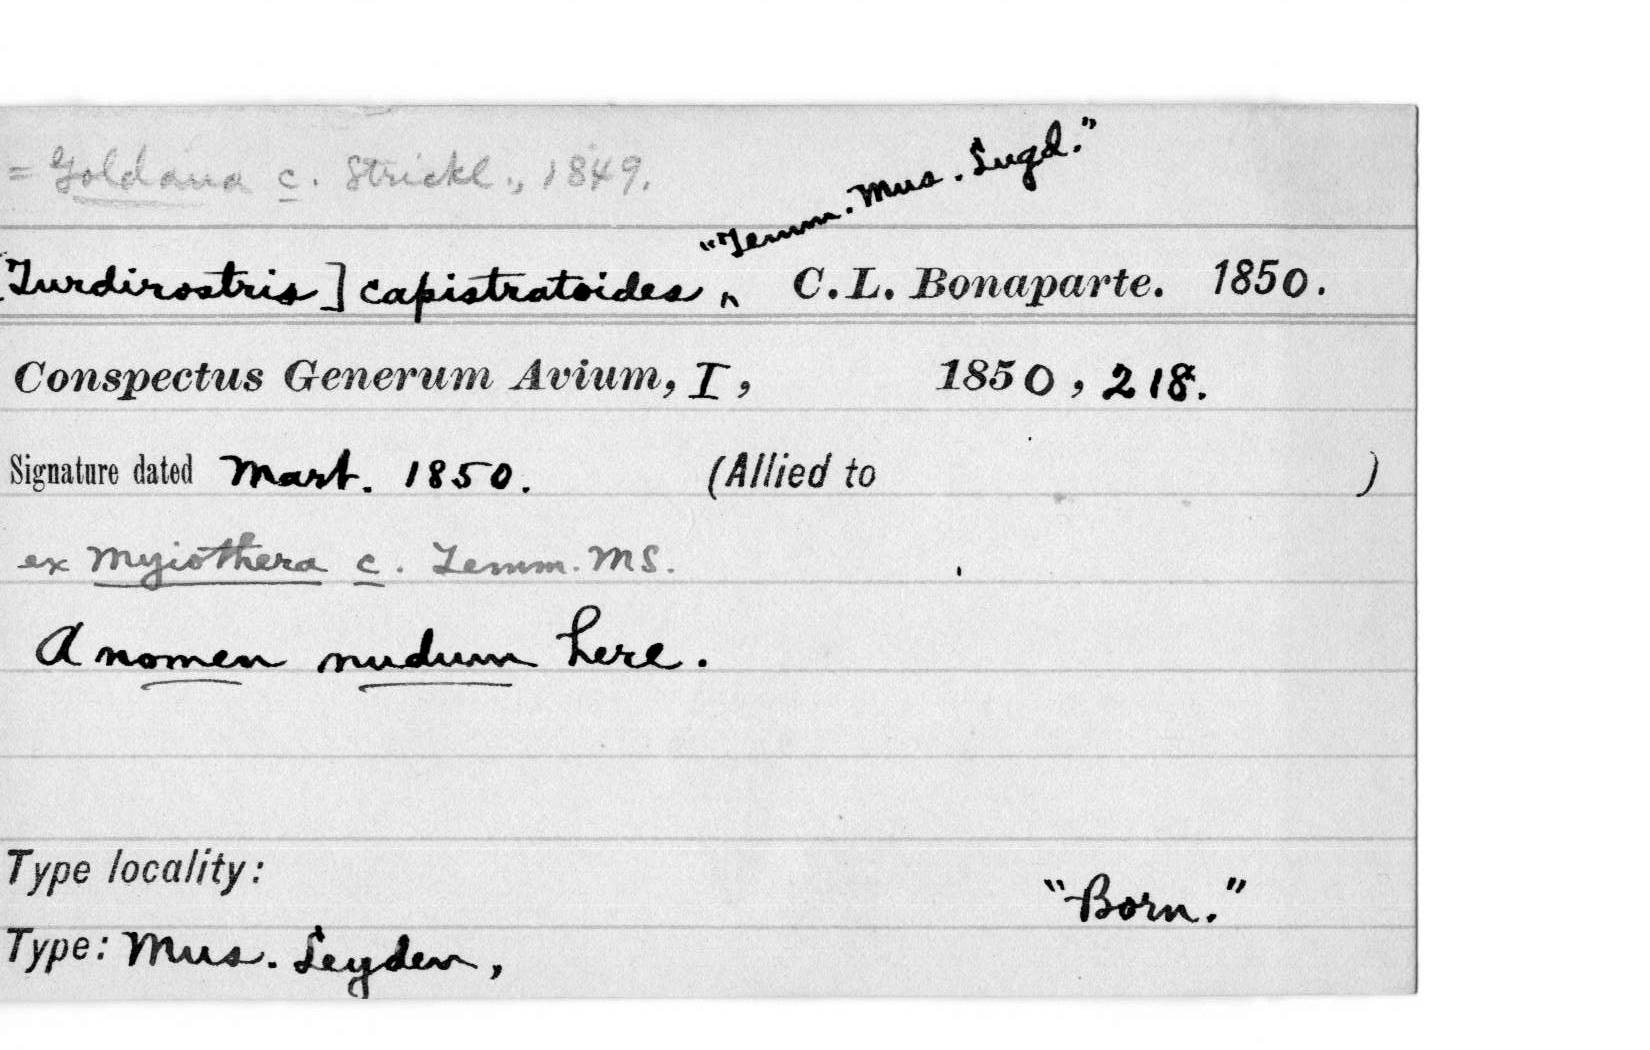 = Goldana c. Strickl., 1849.
"Temm. Mus. Lugd."
[Turdirostris] capistratoides ^ C.L. Bonaparte. 1850.
Conspectus Generum Avium, I, 1850, 218.
Signature dated Mart. 1850. (Allied to )
ex Myiothera c. Temm. MS.
A nomen nudum here.
Type locality:
"Born."
Type: Mus. Leyden,